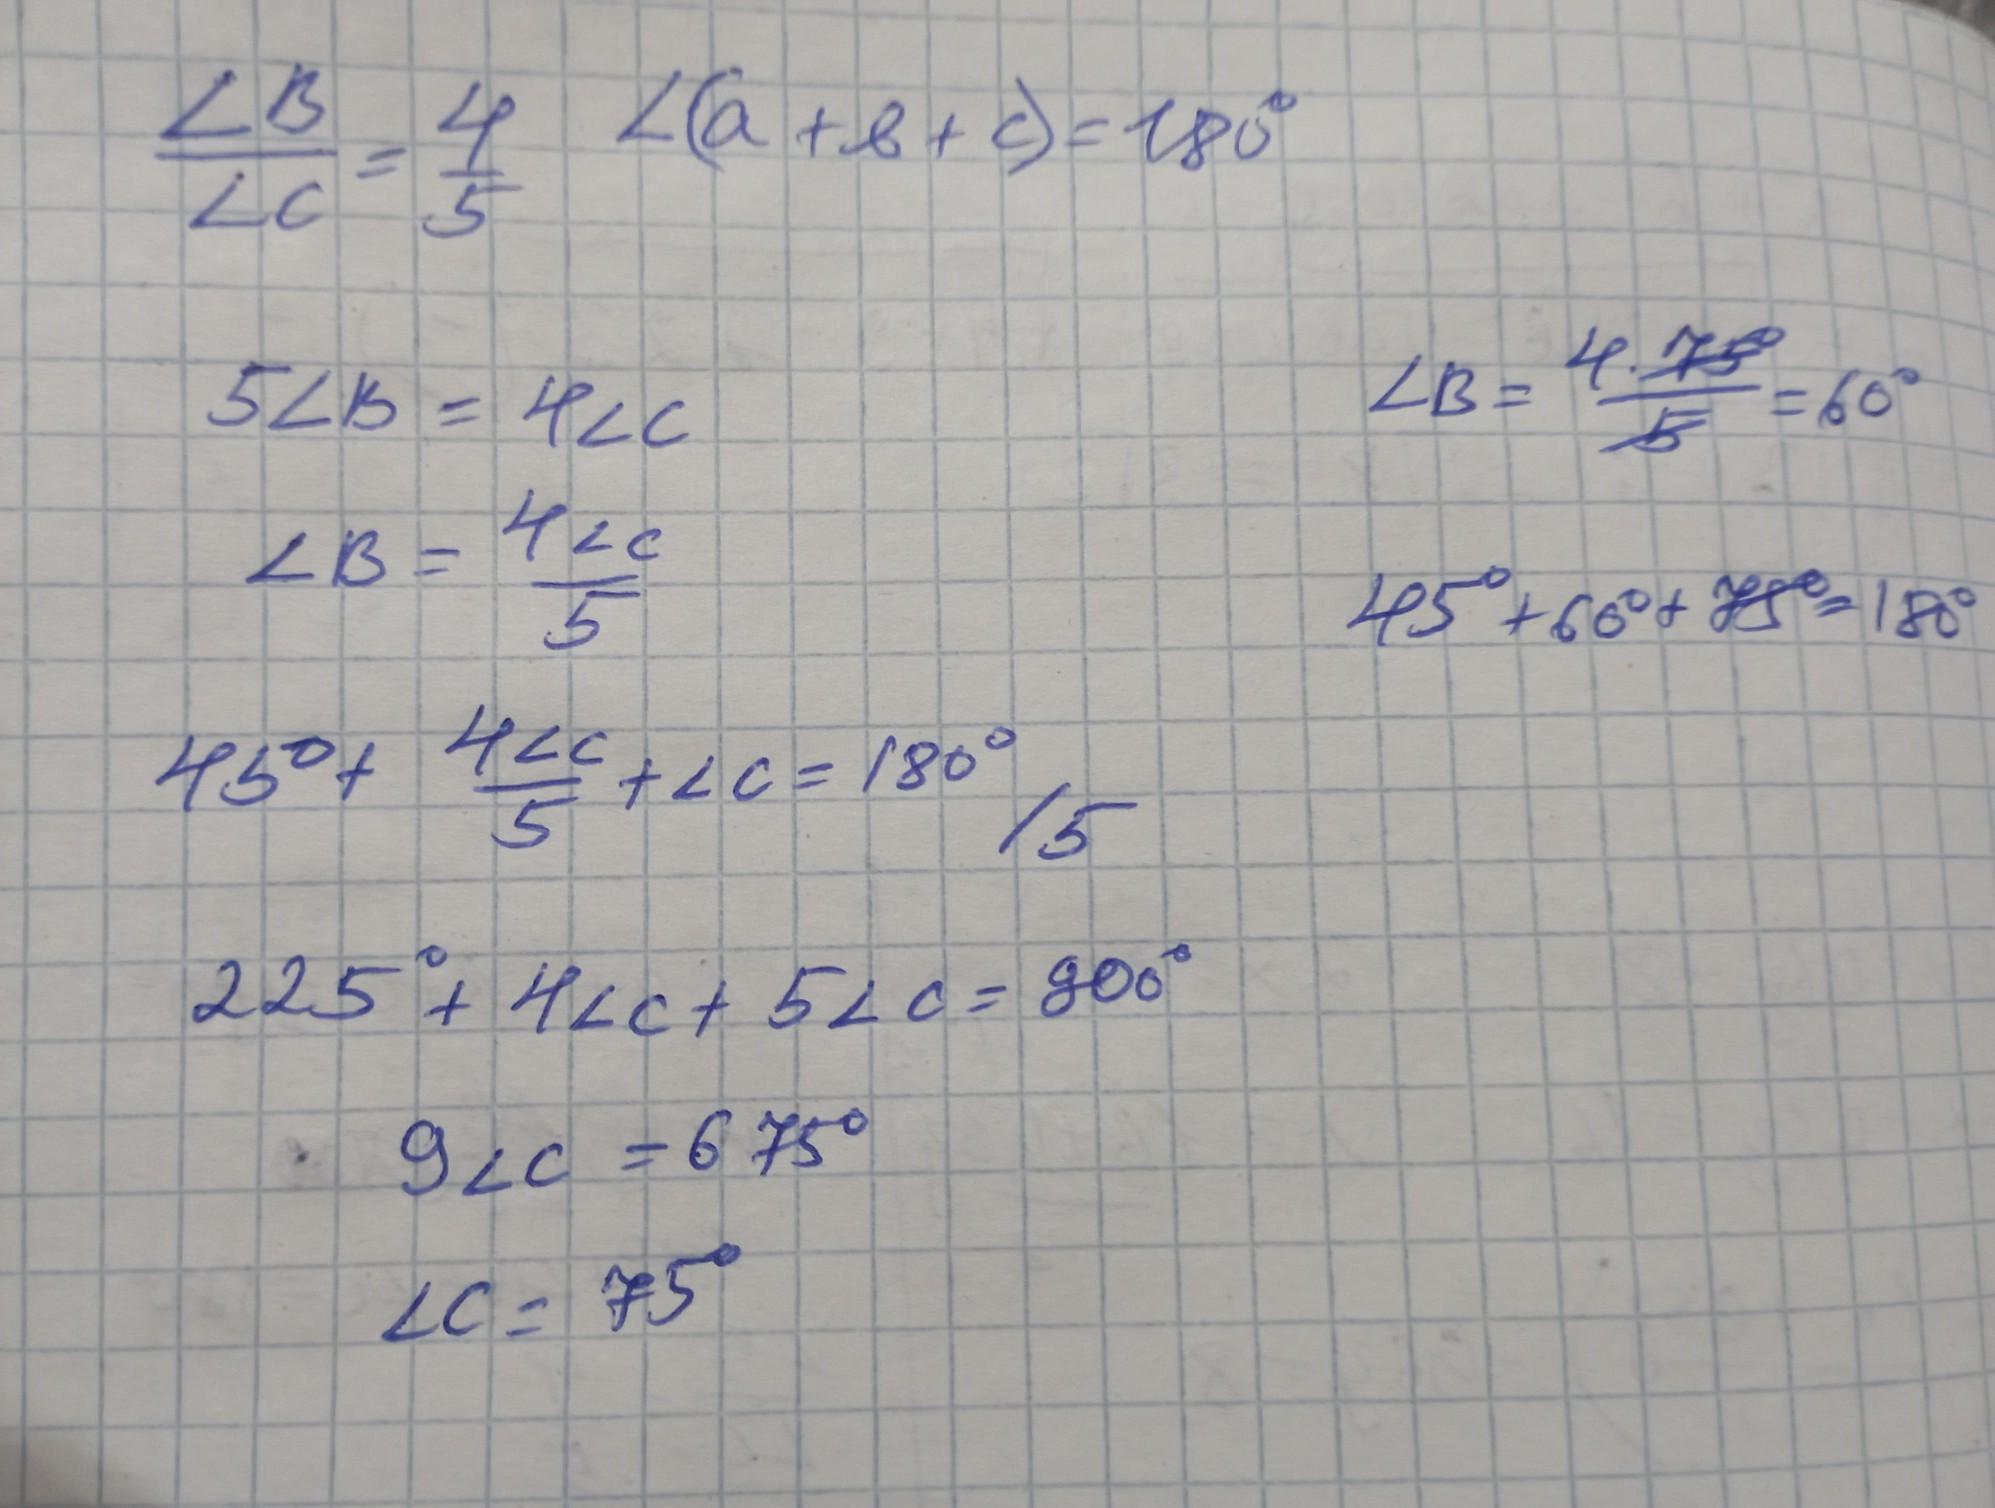 ∠B/∠C = 4/5 ∠(a + b + c) = 180°
5∠B = 4∠C
∠B = 4∠C/5
45° + 4∠C/5 + ∠C = 180° /5
225° + 4∠C + 5∠C = 900°
9∠C = 675°
∠C = 75°
∠B = 4·75°/5 = 60°
45° + 60° + 75° = 180°